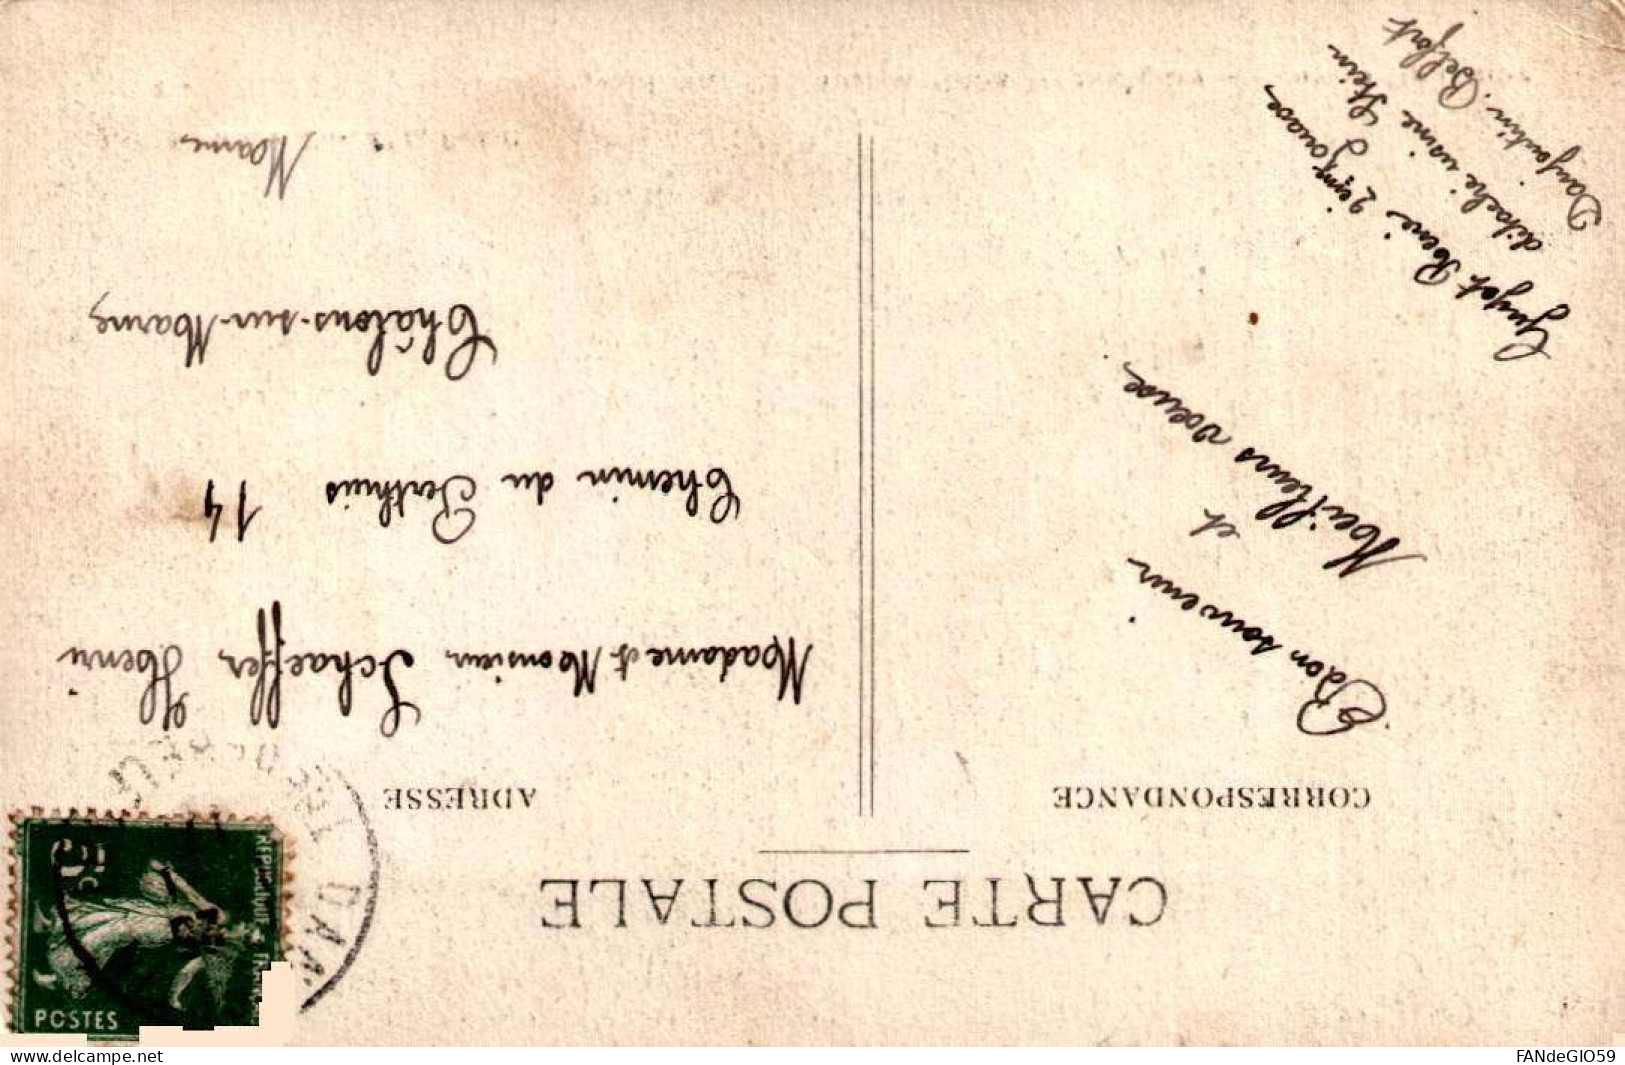 CARTE POSTALE
CORRESPONDANCE
Bon souvenir
et
Meilleurs voeux.
Guyot René 2ème Zouave
détaché usine Stein
Danjoutin. Belfort
ADRESSE
Madame et Monsieur Schaeffer Henri
Chemin du Perthuis 14
Châlons-sur-Marne
Marne
5c
POSTES
delcampe.net
FANdeGIO59